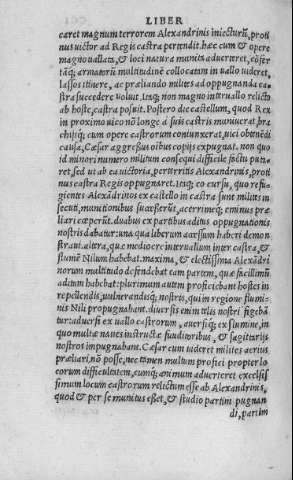 LIBER
caret magnum terrorem Alexandrinis iniecturũ, proti
nus uictor ad Regis castra pertendit. hæc cum & opere
magno uallata, & loci natura munita aduerteret, cõfer
tãq; armatorũ multitudinẽ collocatam in uallo uideret,
lassos itinere, ac præliando milites ad oppugnanda ca
stra succedere noluit. Itaq; non magno interuallo relicto
ab hoste, castra posuit. Postero die castellum, quod Rex
in proximo uico nõ longe a suis castris munuerat bra
chijsq; cum opere castrorum coniunxerat, uici obtinẽdi
causa, Cæsar aggressus oibus copijs expugnat. non quo
id minori numero militum consequi difficile factu puta
ret, sed ut ab ea uictoria, perterritis Alexandrinis, proti
nus castra Regis oppugnaret. Itaq; eo cursu, quo refu
gientes Alexãdrinos ex castello in castra sunt milites in
secuti, munitionibus successerũt, acerrimeq; eminus præ
liari cœperũt. duabus ex partibus aditus oppugnationis
nostris dabatur: una quã liberum accessum habere demon
straui. altera, quæ mediocre interuallum inter castra, &
flumẽ Nilum habebat. maxima, & electissima Alexãdri
norum multitudo defendebat eam partem, quæ facillimũ
aditum habebat: plurimum autem proficiebant hostes in
repellendis, uulnerandisq; nostris, qui in regione flumi
nis Nili propugnabant. diuersis enim telis nostri figebã
tur: aduersi ex uallo castrorum, auersiq; ex flumine, in
quo multæ naues instructæ funditoribus, & sagittarijs
nostros impugnabant. Cæsar cum uideret milites acrius
præliari, nõ posse, nec tamen multum profici propter lo
corum difficultatem, cumq; animum aduerteret excelsis
simum locum castrorum relictum esse ab Alexandrinis,
quod & per se munitus esset, & studio partim pugnan
di, partim